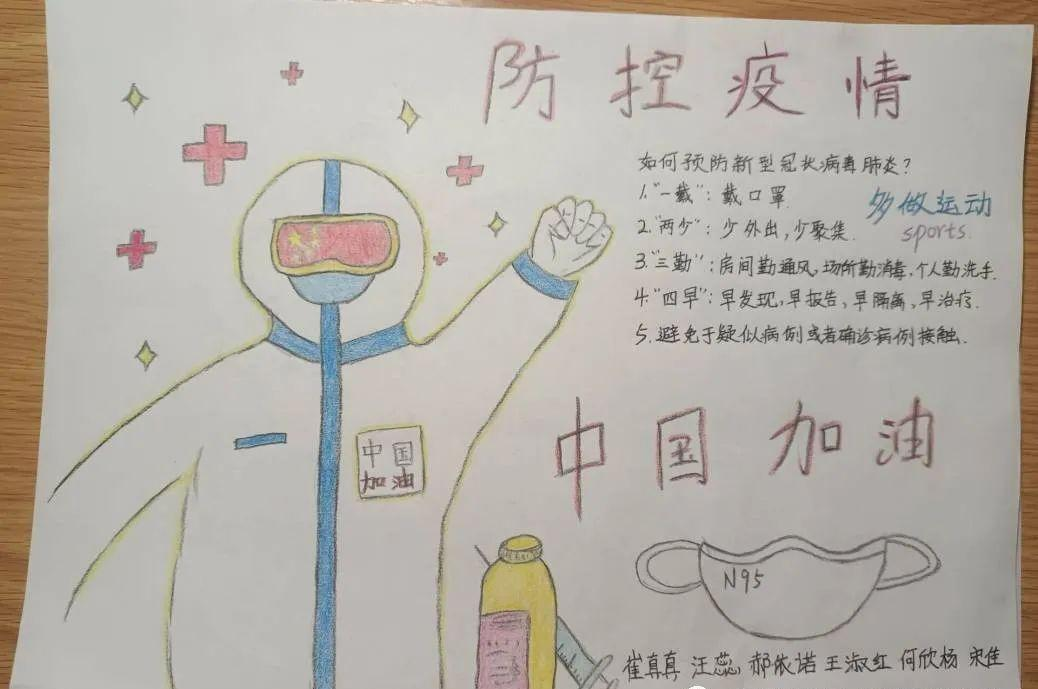 防控疫情
如何预防新型冠状病毒肺炎?
1."一戴":戴口罩.
2."两少":少外出,少聚集.
多做运动
sports.
3."三勤":房间勤通风,场所勤消毒,个人勤洗手.
4."四早":早发现,早报告,早隔离,早治疗.
5.避免于疑似病例或者确诊病例接触.
中国加油
中国
加油
N95
崔真真 汪蕊 郝依诺 王淑红 何欣杨 宋佳